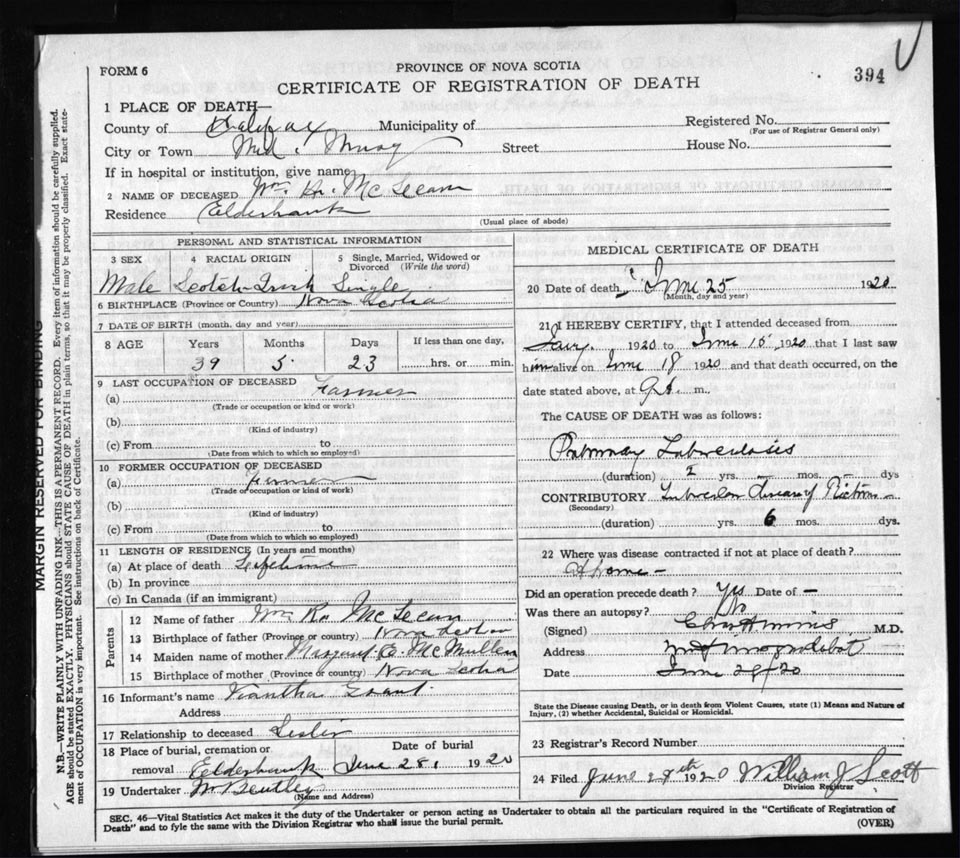 394
FORM 6
PROVINCE OF NOVA SCOTIA
CERTIFICATE OF REGISTRATION OF DEATH
1 PLACE OF DEATH—
County of Halifax Municipality of Registered No.
(For use of Registrar General only)
City or Town Street House No.
If in hospital or institution, give name
2 NAME OF DECEASED Wm.
Residence Elderbank
(Usual place of abode)
PERSONAL AND STATISTICAL INFORMATION
3 SEX 4 RACIAL ORIGIN 5 Single, Married, Widowed or Divorced (Write the word)
Male Scotch Irish Single
6 BIRTHPLACE (Province or Country) Nova Scotia
7 DATE OF BIRTH (month, day and year)
8 AGE Years Months Days If less than one day,
39 5 23 hrs. or min.
9 LAST OCCUPATION OF DECEASED
(a) Farmer
(Trade or occupation or kind or work)
(b)
(Kind of industry)
(c) From to
(Date from which to which so employed)
10 FORMER OCCUPATION OF DECEASED
(a) Farmer
(Trade or occupation or kind or work)
(b)
(Kind of industry)
(c) From to
(Date from which to which so employed)
11 LENGTH OF RESIDENCE (In years and months)
(a) At place of death Lifetime
(b) In province
(c) In Canada (if an immigrant)
Parents
12 Name of father Wm
13 Birthplace of father (Province or country) Nova Scotia
14 Maiden name of mother Margaret McMullen
15 Birthplace of mother (Province or country) Nova Scotia
16 Informant's name Grant
Address
17 Relationship to deceased Sister
18 Place of burial, cremation or Date of burial
removal Elderbank June 28, 1920
19 Undertaker W Bentley
(Name and Address)
MEDICAL CERTIFICATE OF DEATH
20 Date of death June 25 1920
(Month, day and year)
21 I HEREBY CERTIFY, that I attended deceased from
1920 to June 1920 that I last saw
him alive on June 18 1920 and that death occurred, on the
date stated above, at m.
The CAUSE OF DEATH was as follows:
Pulmonary Tuberculosis
(duration) yrs. mos. dys
CONTRIBUTORY
(Secondary)
(duration) yrs. 6 mos. dys.
22 Where was disease contracted if not at place of death?
At home –
Did an operation precede death? Yes Date of –
Was there an autopsy? No
(Signed) M.D.
Address
Date June 28/20
State the Disease causing Death, or in death from Violent Causes, state (1) Means and Nature of
Injury, (2) whether Accidental, Suicidal or Homicidal.
23 Registrar's Record Number
24 Filed June 28th 1920 William J Scott
Division Registrar
SEC. 46—Vital Statistics Act makes it the duty of the Undertaker or person acting as Undertaker to obtain all the particulars required in the "Certificate of Registration of
Death" and to fyle the same with the Division Registrar who shall issue the burial permit.
(OVER)
MARGIN RESERVED FOR BINDING
N.B.—WRITE PLAINLY WITH UNFADING INK—THIS IS A PERMANENT RECORD. Every item of information should be carefully supplied.
AGE should be stated EXACTLY. PHYSICIANS should STATE CAUSE OF DEATH in plain terms, so that it may be properly classified. Exact statement
of OCCUPATION is very important. See instructions on back of Certificate.